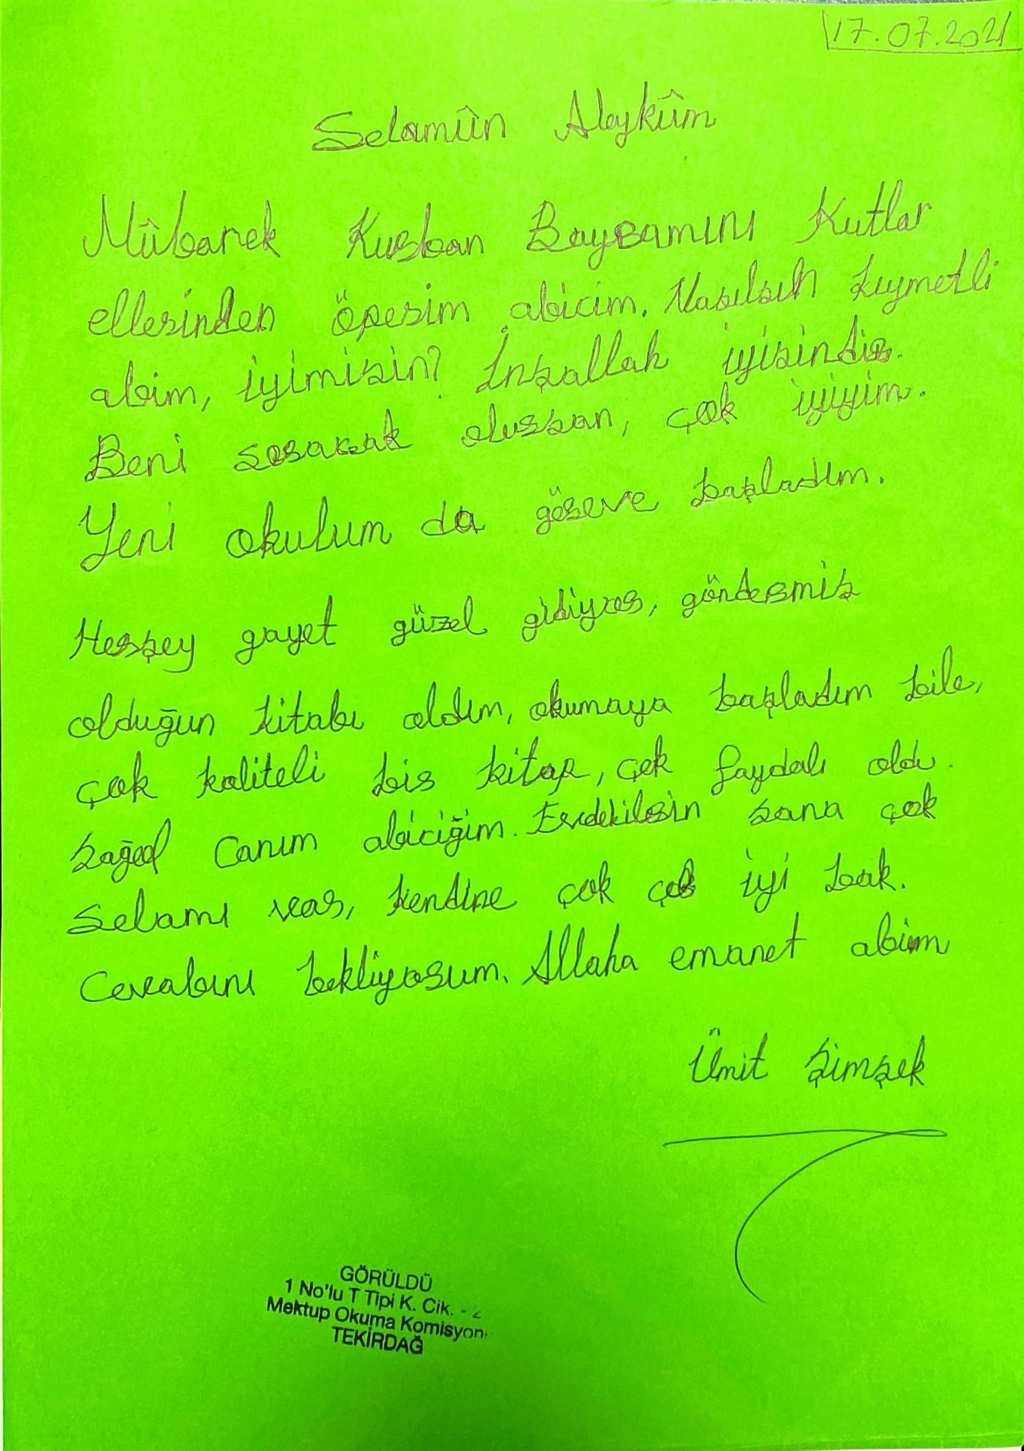 17.07.2021
Selamûn Aleykûm
Mûbarek Kurban Bayramını Kutlar
ellerinden öperim abicim. Nasılsın kıymetli
abim, iyimisin? İnşallah iyisindir.
Beni soracak olursan, çok iyiyim.
Yeni okulum da göreve başladım.
Herşey gayet güzel gidiyor, göndermiş
olduğun kitabı aldım, okumaya başladım bile,
çok kaliteli bir kitap, çok faydalı oldu.
Sağol Canım abiciğim. Evdekilerin sana çok
Selamı var, kendine çok çok iyi bak.
Cevabını bekliyorum. Allaha emanet abim
Ümit Şimşek
GÖRÜLDÜ
1 No'lu T Tipi K. Cik. - 2
Mektup Okuma Komisyonu
TEKİRDAĞ